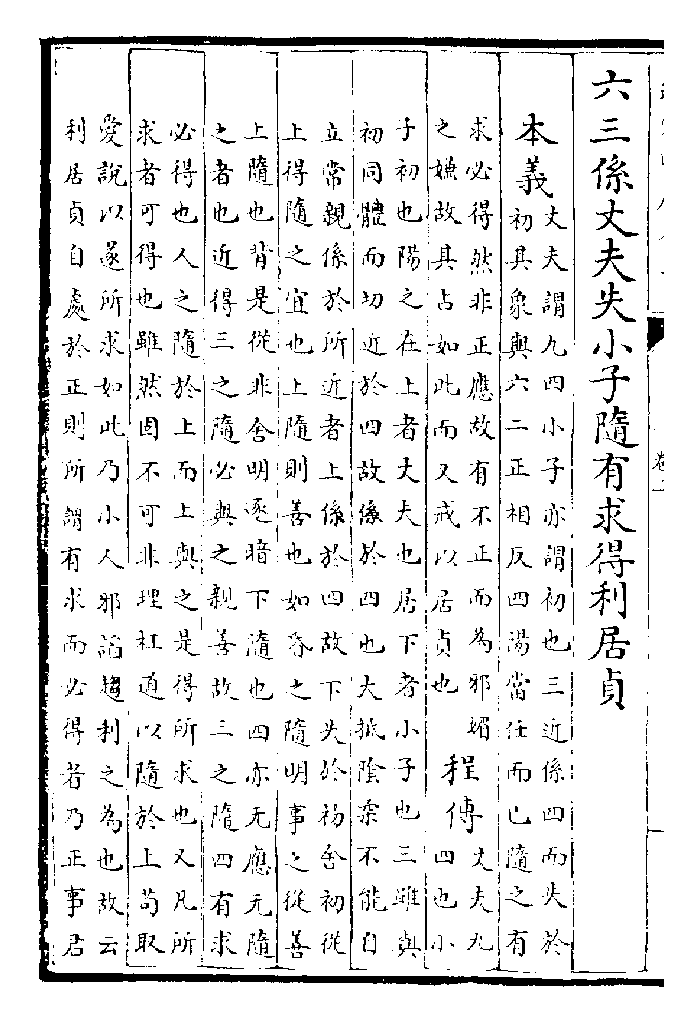 六三係丈夫失小子隨有求得利居貞
本義
丈夫謂九四小子亦謂初也三近係四而失於
初其象與六二正相反四陽當任而已隨之有
求必得然非正應故有不正而為邪媚
之嫌故其占如此而又戒以居貞也
程傳
丈夫九
四也小
子初也陽之在上者丈夫也居下者小子也三雖與
初同體而切近於四故係於四也大抵陰柔不能自
立常親係於所近者上係於四故下失於初舍初從
上得隨之宜也上隨則善也如昏之隨明事之從善
上隨也背是從非舍明逐暗下隨也四亦无應无隨
之者也近得三之隨必與之親善故三之隨四有求
必得也人之隨於上而上與之是得所求也又凡所
求者可得也雖然固不可非理枉道以隨於上苟取
愛說以遂所求如此乃小人邪諂趨利之為也故云
利居貞自處於正則所謂有求而必得者乃正事君